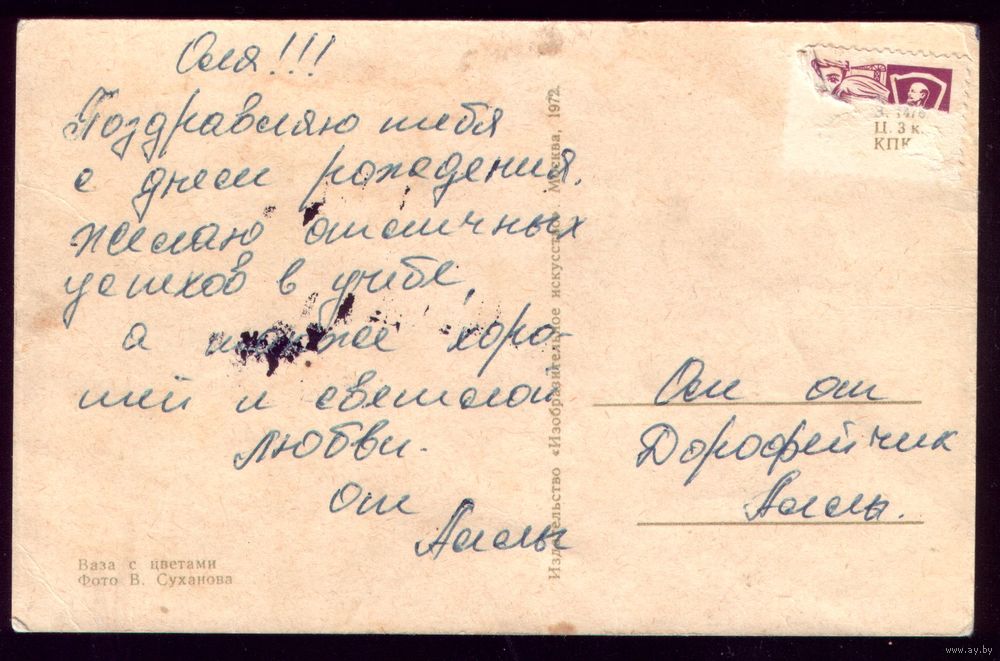 Оля!!!
Поздравляю тебя
с днем рождения,
желаю отличных
успехов в учебе,
а также хоро-
шей и светлой
любви.
от
Аллы
Ваза с цветами
Фото В. Суханова
Издательство «Изобразительное искусство». Москва, 1972.
Ц. 3 к.
КПК
Оли от
Дорофейчик
Аллы.
www.ay.by